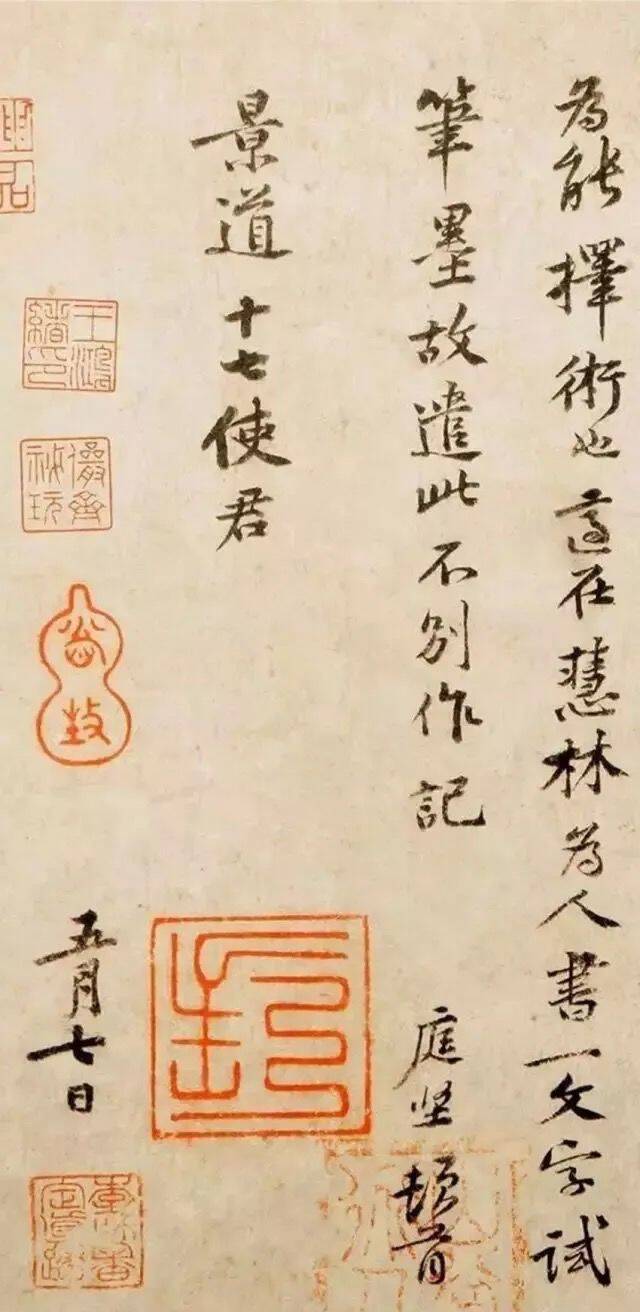 为能择術也适在慧林为人書一文字試
筆墨故遣此不别作記
庭坚頓首
景道十七使君
五月七日